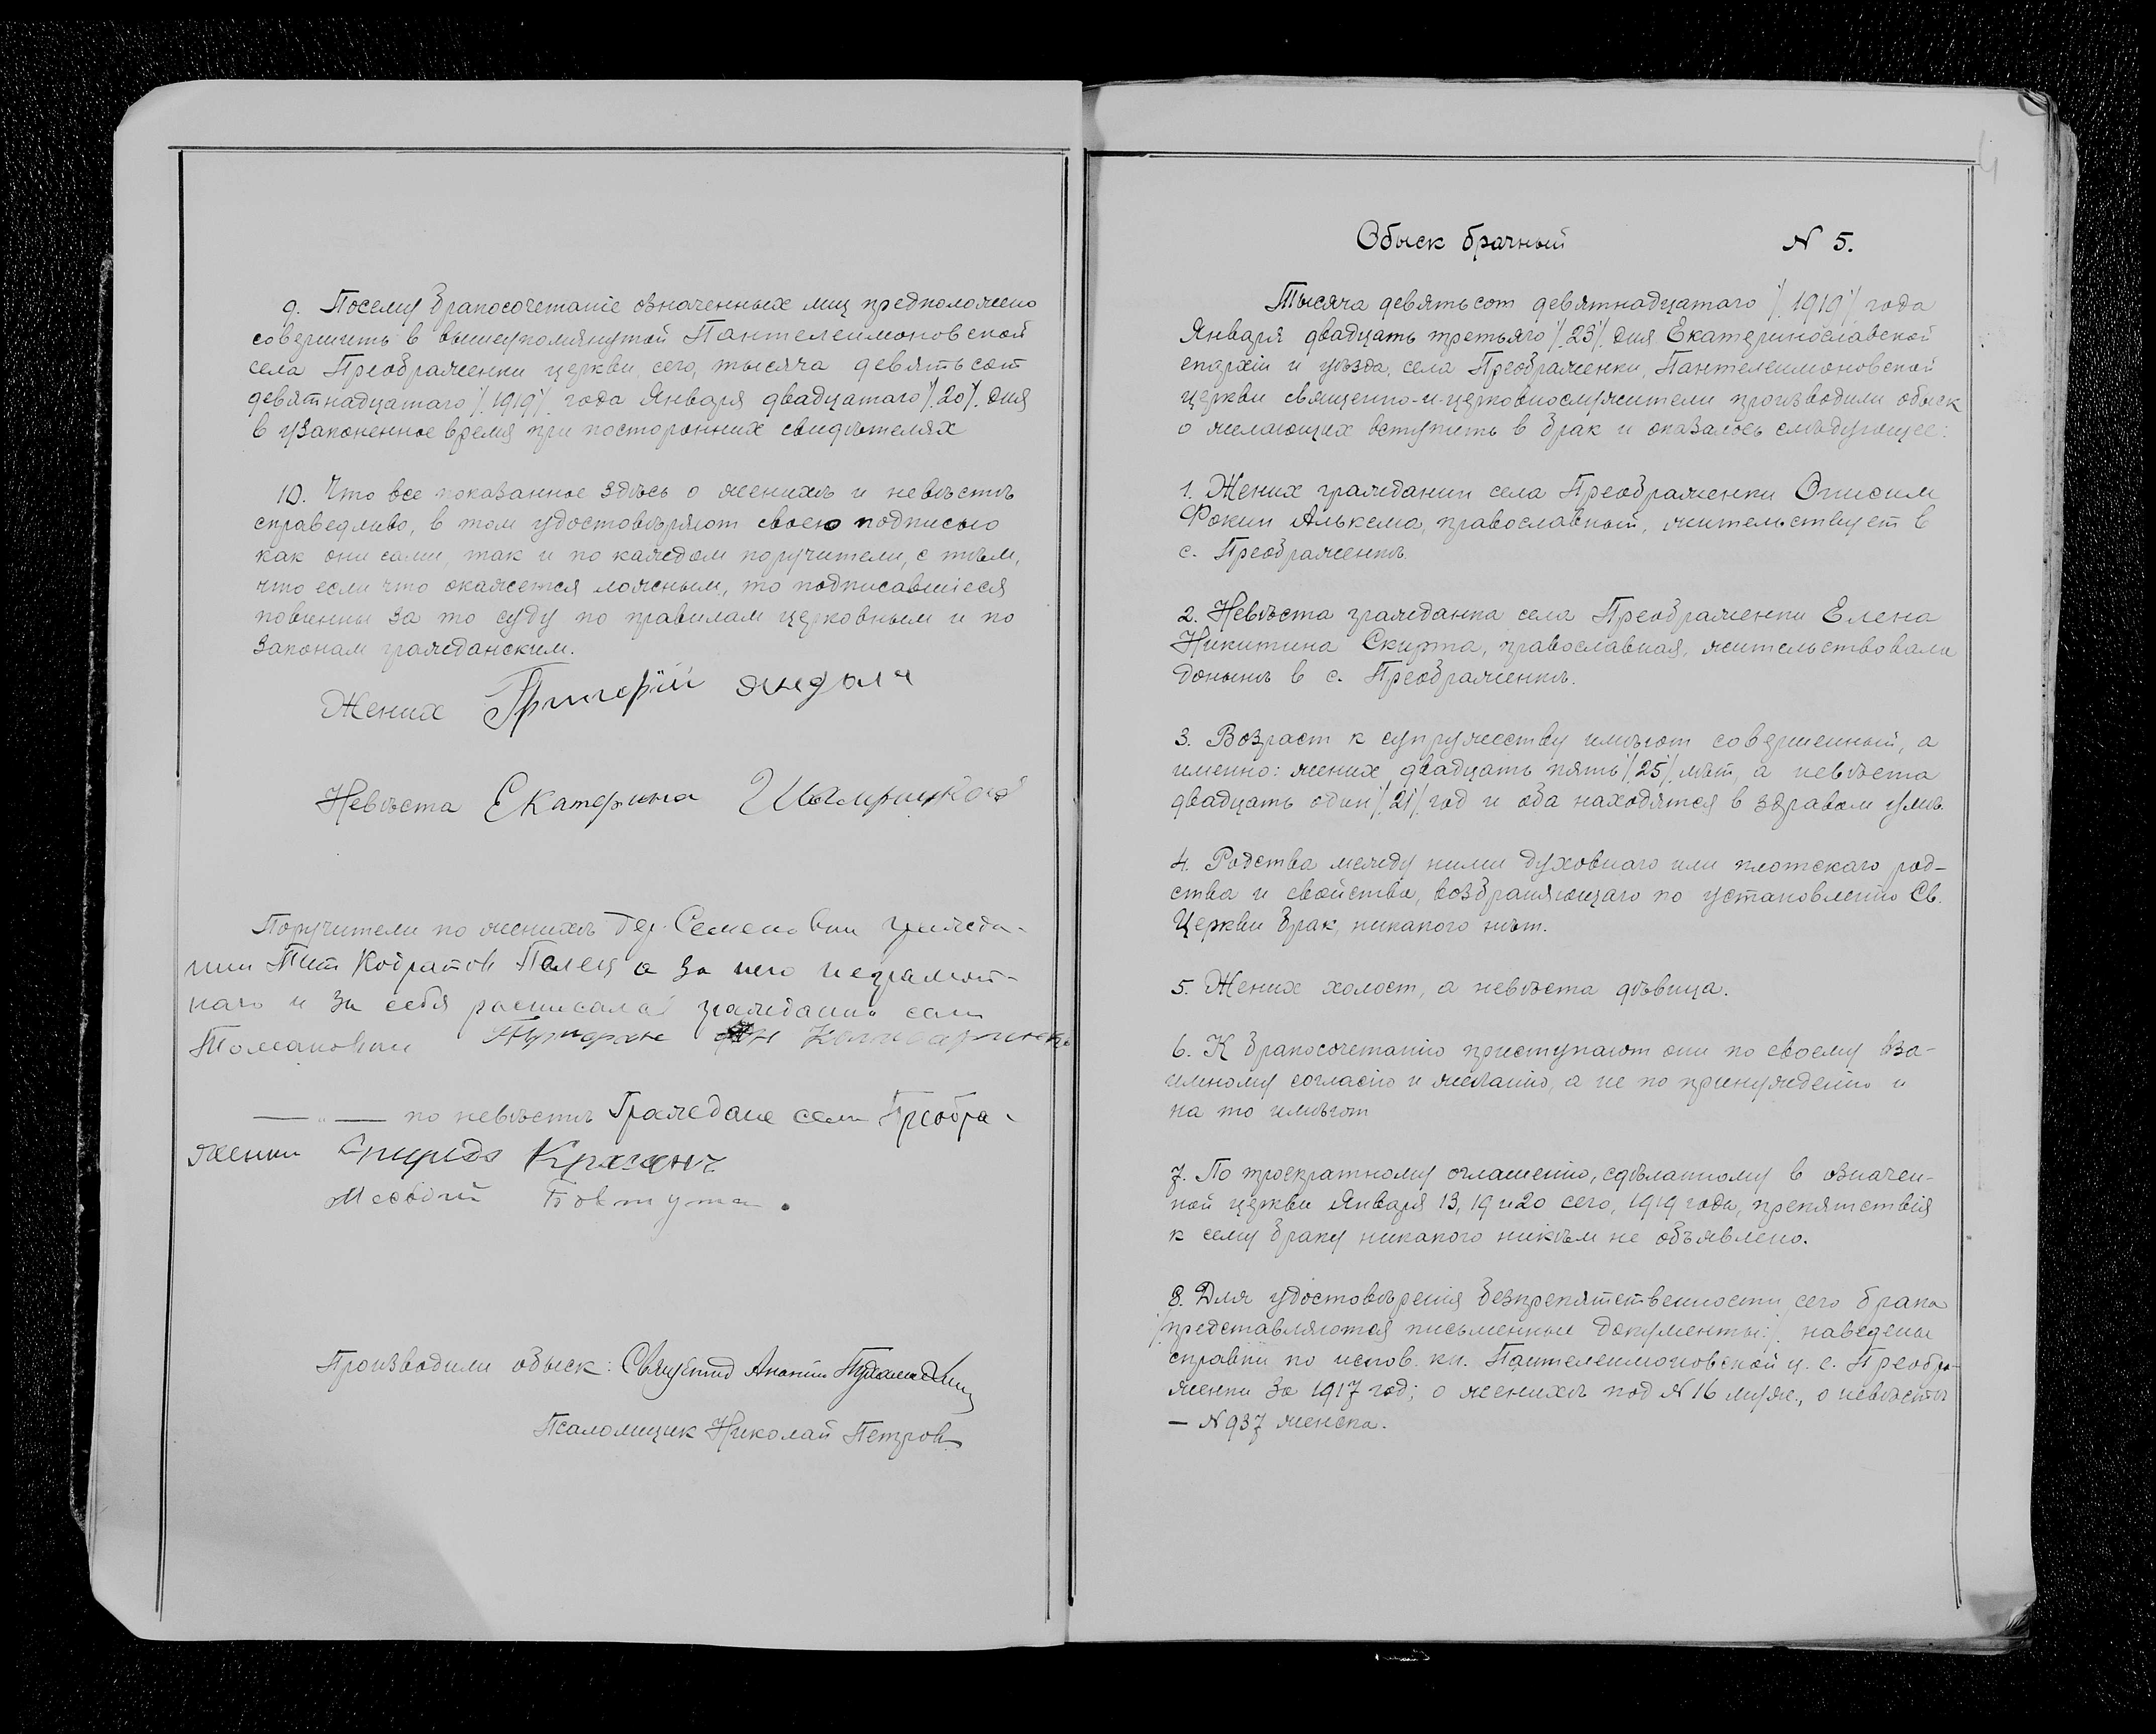 9. Посему бракосочетаніе означенных лиц предположено
совершить в вышеупомянутой Пантелеимоновской
села Преображенки церкви, сего, тысяча девятьсот
девятнадцатаго /.1919/. года Января двадцатаго /.20/. дня
в узаконенное время при посторонних свидѣтелях
10. Что все показанное здѣсь о женихѣ и невѣстѣ
справедливо, в том удостовѣряют своею подписью
как они сами, так и по каждом поручители, с тѣм,
что если что окажется ложным, то подписавшіеся
повинны за то суду по правилам церковным и по
законам гражданским.
Жених Григорій
Невѣста Екатерина
Поручители по женихѣ дер. Семеновки гражда-
нин Тит а за него неграмот-
наго и за себя гражданин села
— „ — по невѣстѣ Граждане села Преобра-
женки
Бовтута.
Производили обыск: Священник Ананий
Псаломщик Николай Петров
4
Обыск брачный N 5.
Тысяча девятьсот девятнадцатаго /.1919/. года
Января двадцать третьяго /.23/. дня Екатеринославской
епархіи и уѣзда, села Преображенки, Пантелеимоновской
церкви священно-и-церковнослужители производили обыск
о желающих вступить в брак и оказалось слѣдующее:
1. Жених гражданин села Преображенки Онисим
Фокин Алькема, православный, жительствует в
с. Преображенкѣ.
2. Невѣста гражданка села Преображенки Елена
Никитина Скирта, православная, жительствовала
донынѣ в с. Преображенкѣ.
3. Возраст к супружеству имѣют совершенный, а
именно: жених двадцать пять /.25/. лѣт, а невѣста
двадцать один /.21/. год и оба находятся в здравом умѣ.
4. Родства между ними духовнаго или плотскаго род-
ства и свойства, возбраняющаго по установленію Св.
Церкви брак, никакого нѣт.
5. Жених холост, а невѣста дѣвица.
6. К бракосочетанію приступают они по своему вза-
имному согласію и желанію, а не по принужденію и
на то имѣют
7. По троекратному оглашенію, сдѣланному в означен-
ной церкви Января 13, 19 и 20 сего, 1919 года, препятствія
к сему браку никакого никѣм не объявлено.
8. Для удостовѣренія безпрепятственности сего брака
/.представляются письменные документы:/. наведены
справки по испов. кн. Пантелеимоновской ц. с. Преобра-
женки за 1917 год; о женихѣ под N 16 муж., о невѣстѣ
— N 937 женска.